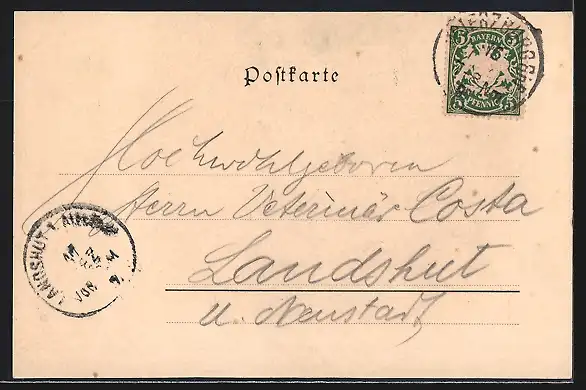 5 BAYERN 5
5 PFENNIG 5
Postkarte
Hochwohlgeboren
Herrn Veterinär Costa
Landshut
u. Neustadt
LANDSHUT